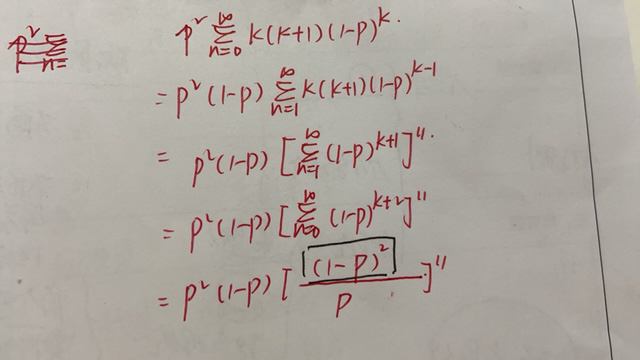 p² Σ n=
p² Σ_{n=0}^{∞} k(k+1)(1-p)^k.
= p²(1-p) Σ_{n=1}^{∞} k(k+1)(1-p)^{k-1}
= p²(1-p) [Σ_{n=1}^{∞} (1-p)^{k+1}]''.
= p²(1-p) [Σ_{n=0}^{∞} (1-p)^{k+2}]''
= p²(1-p) [(1-p)²/p]''